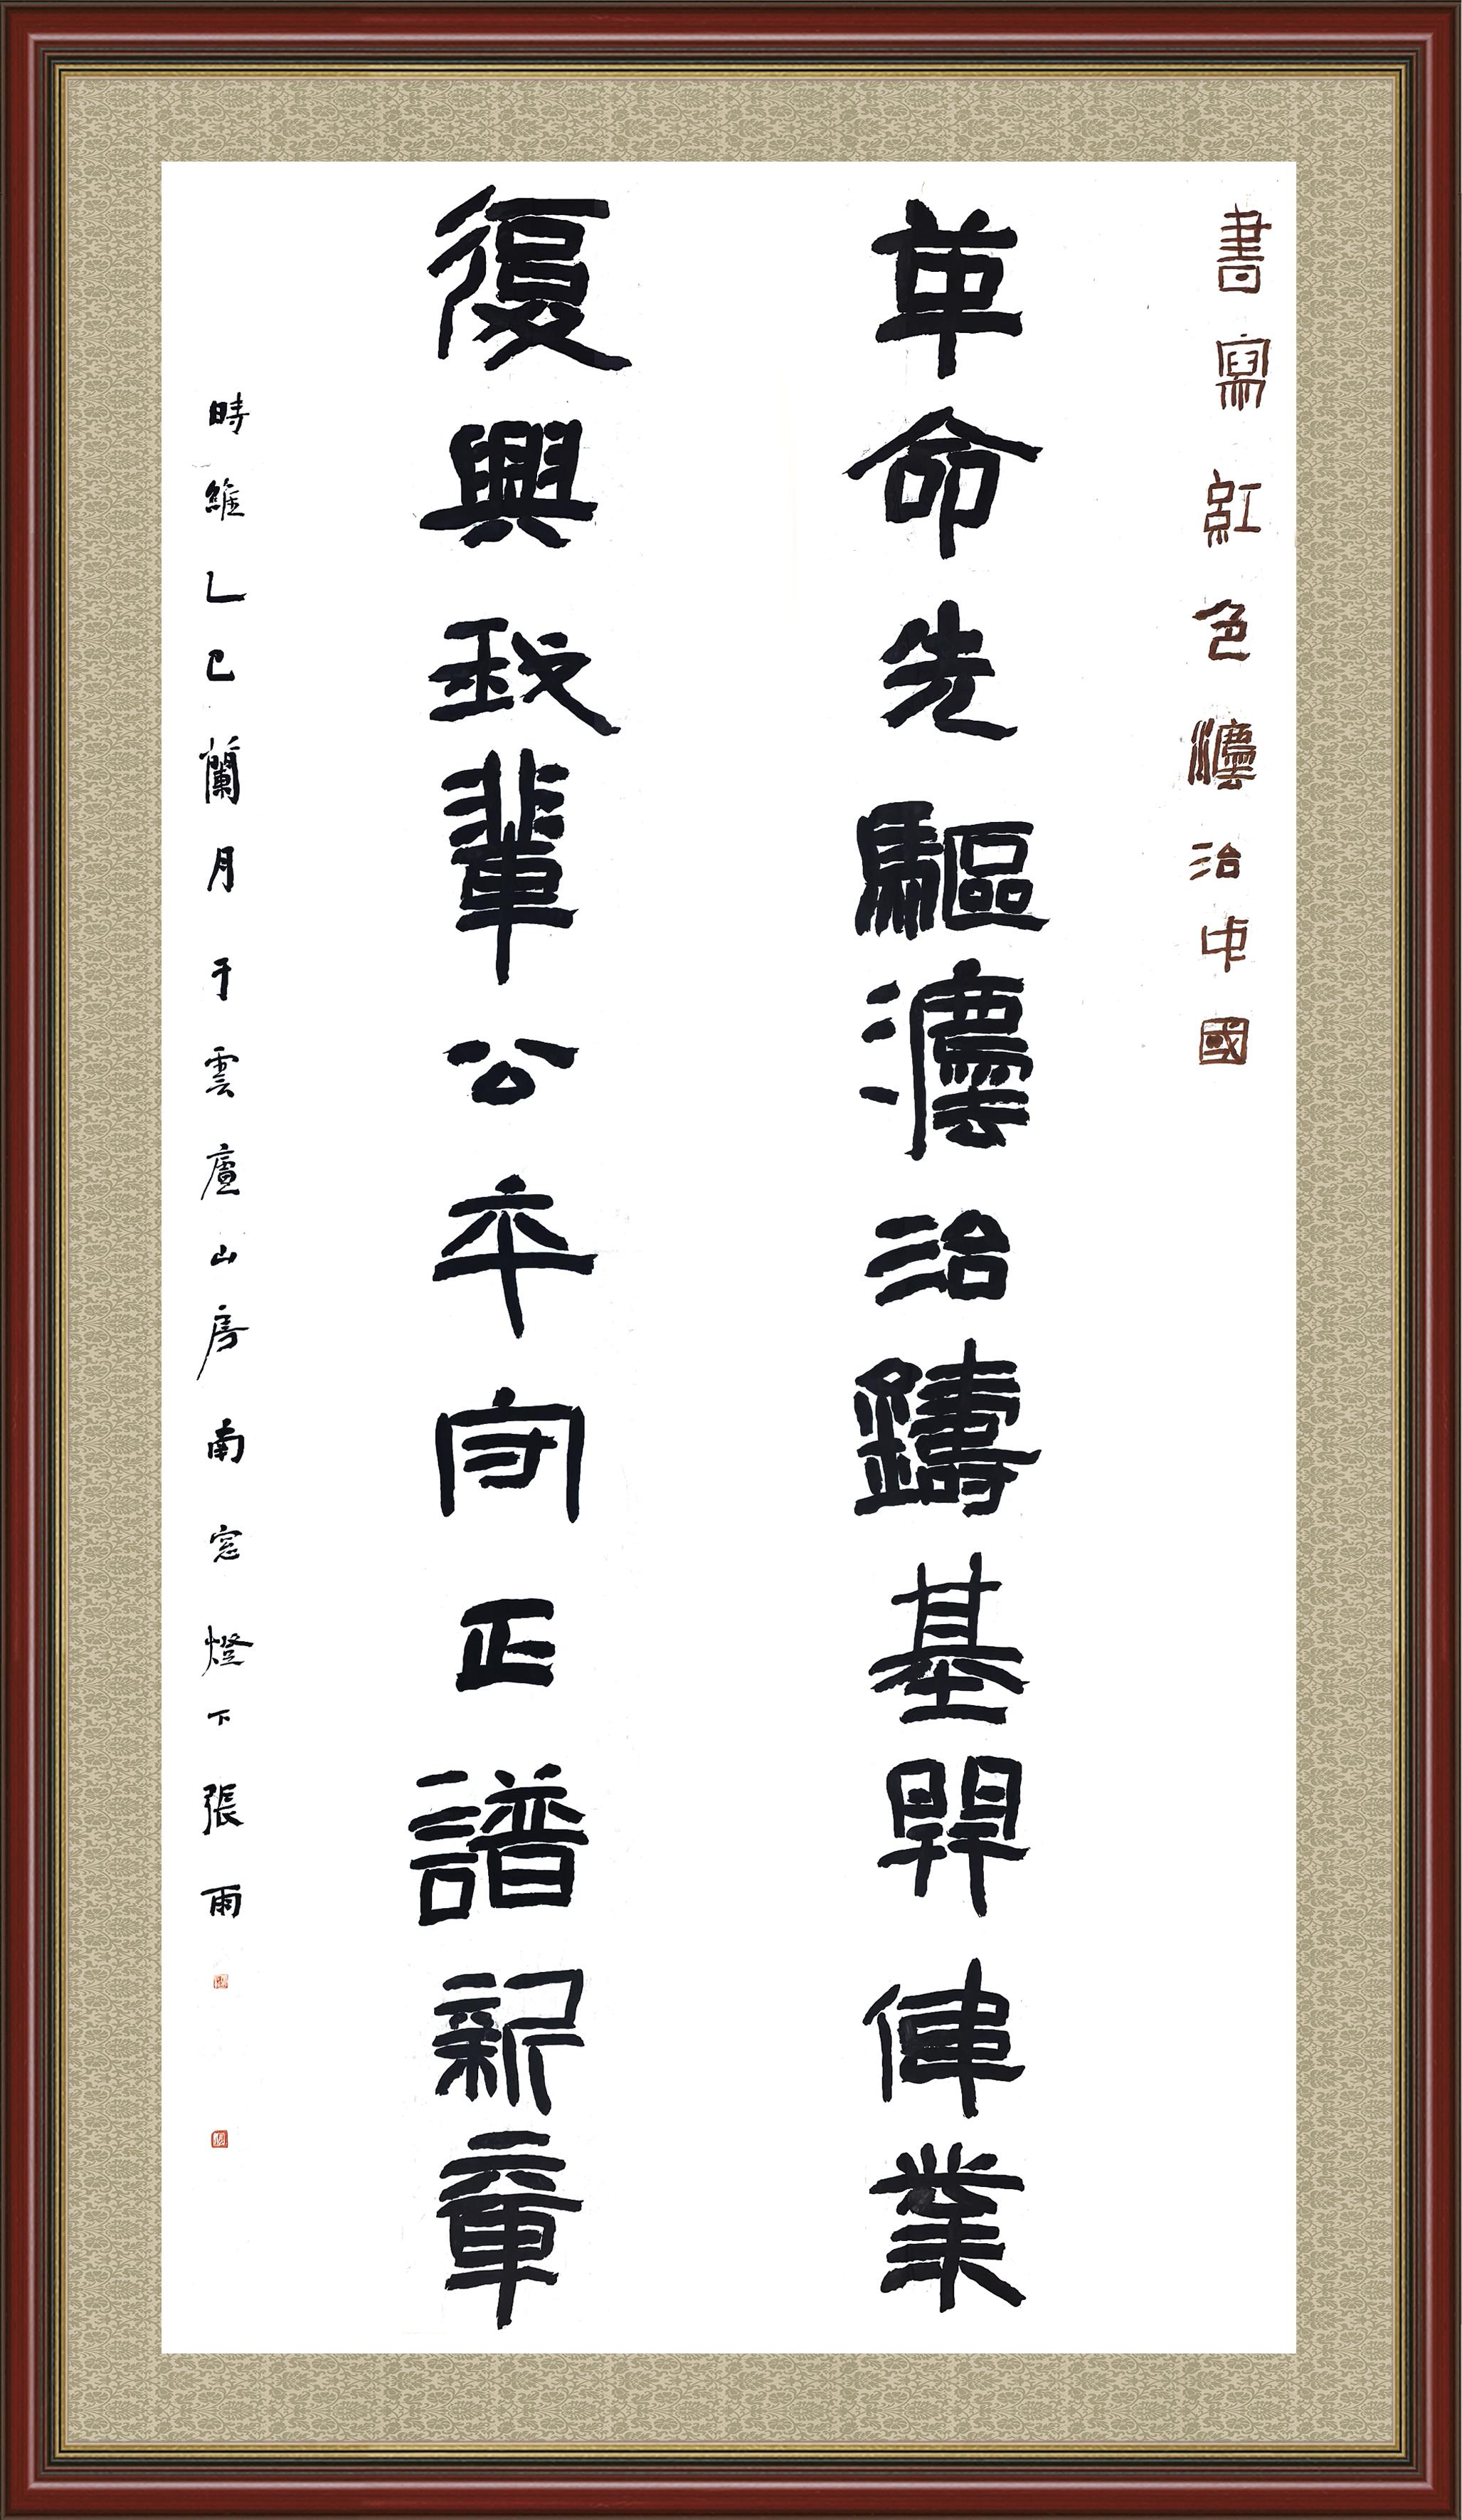 書寫紅色灋治中國
革命先驅灋治鑄基開偉業
復興我輩公平守正譜新章
時維乙巳蘭月于雲廬山房南窓燈下張雨